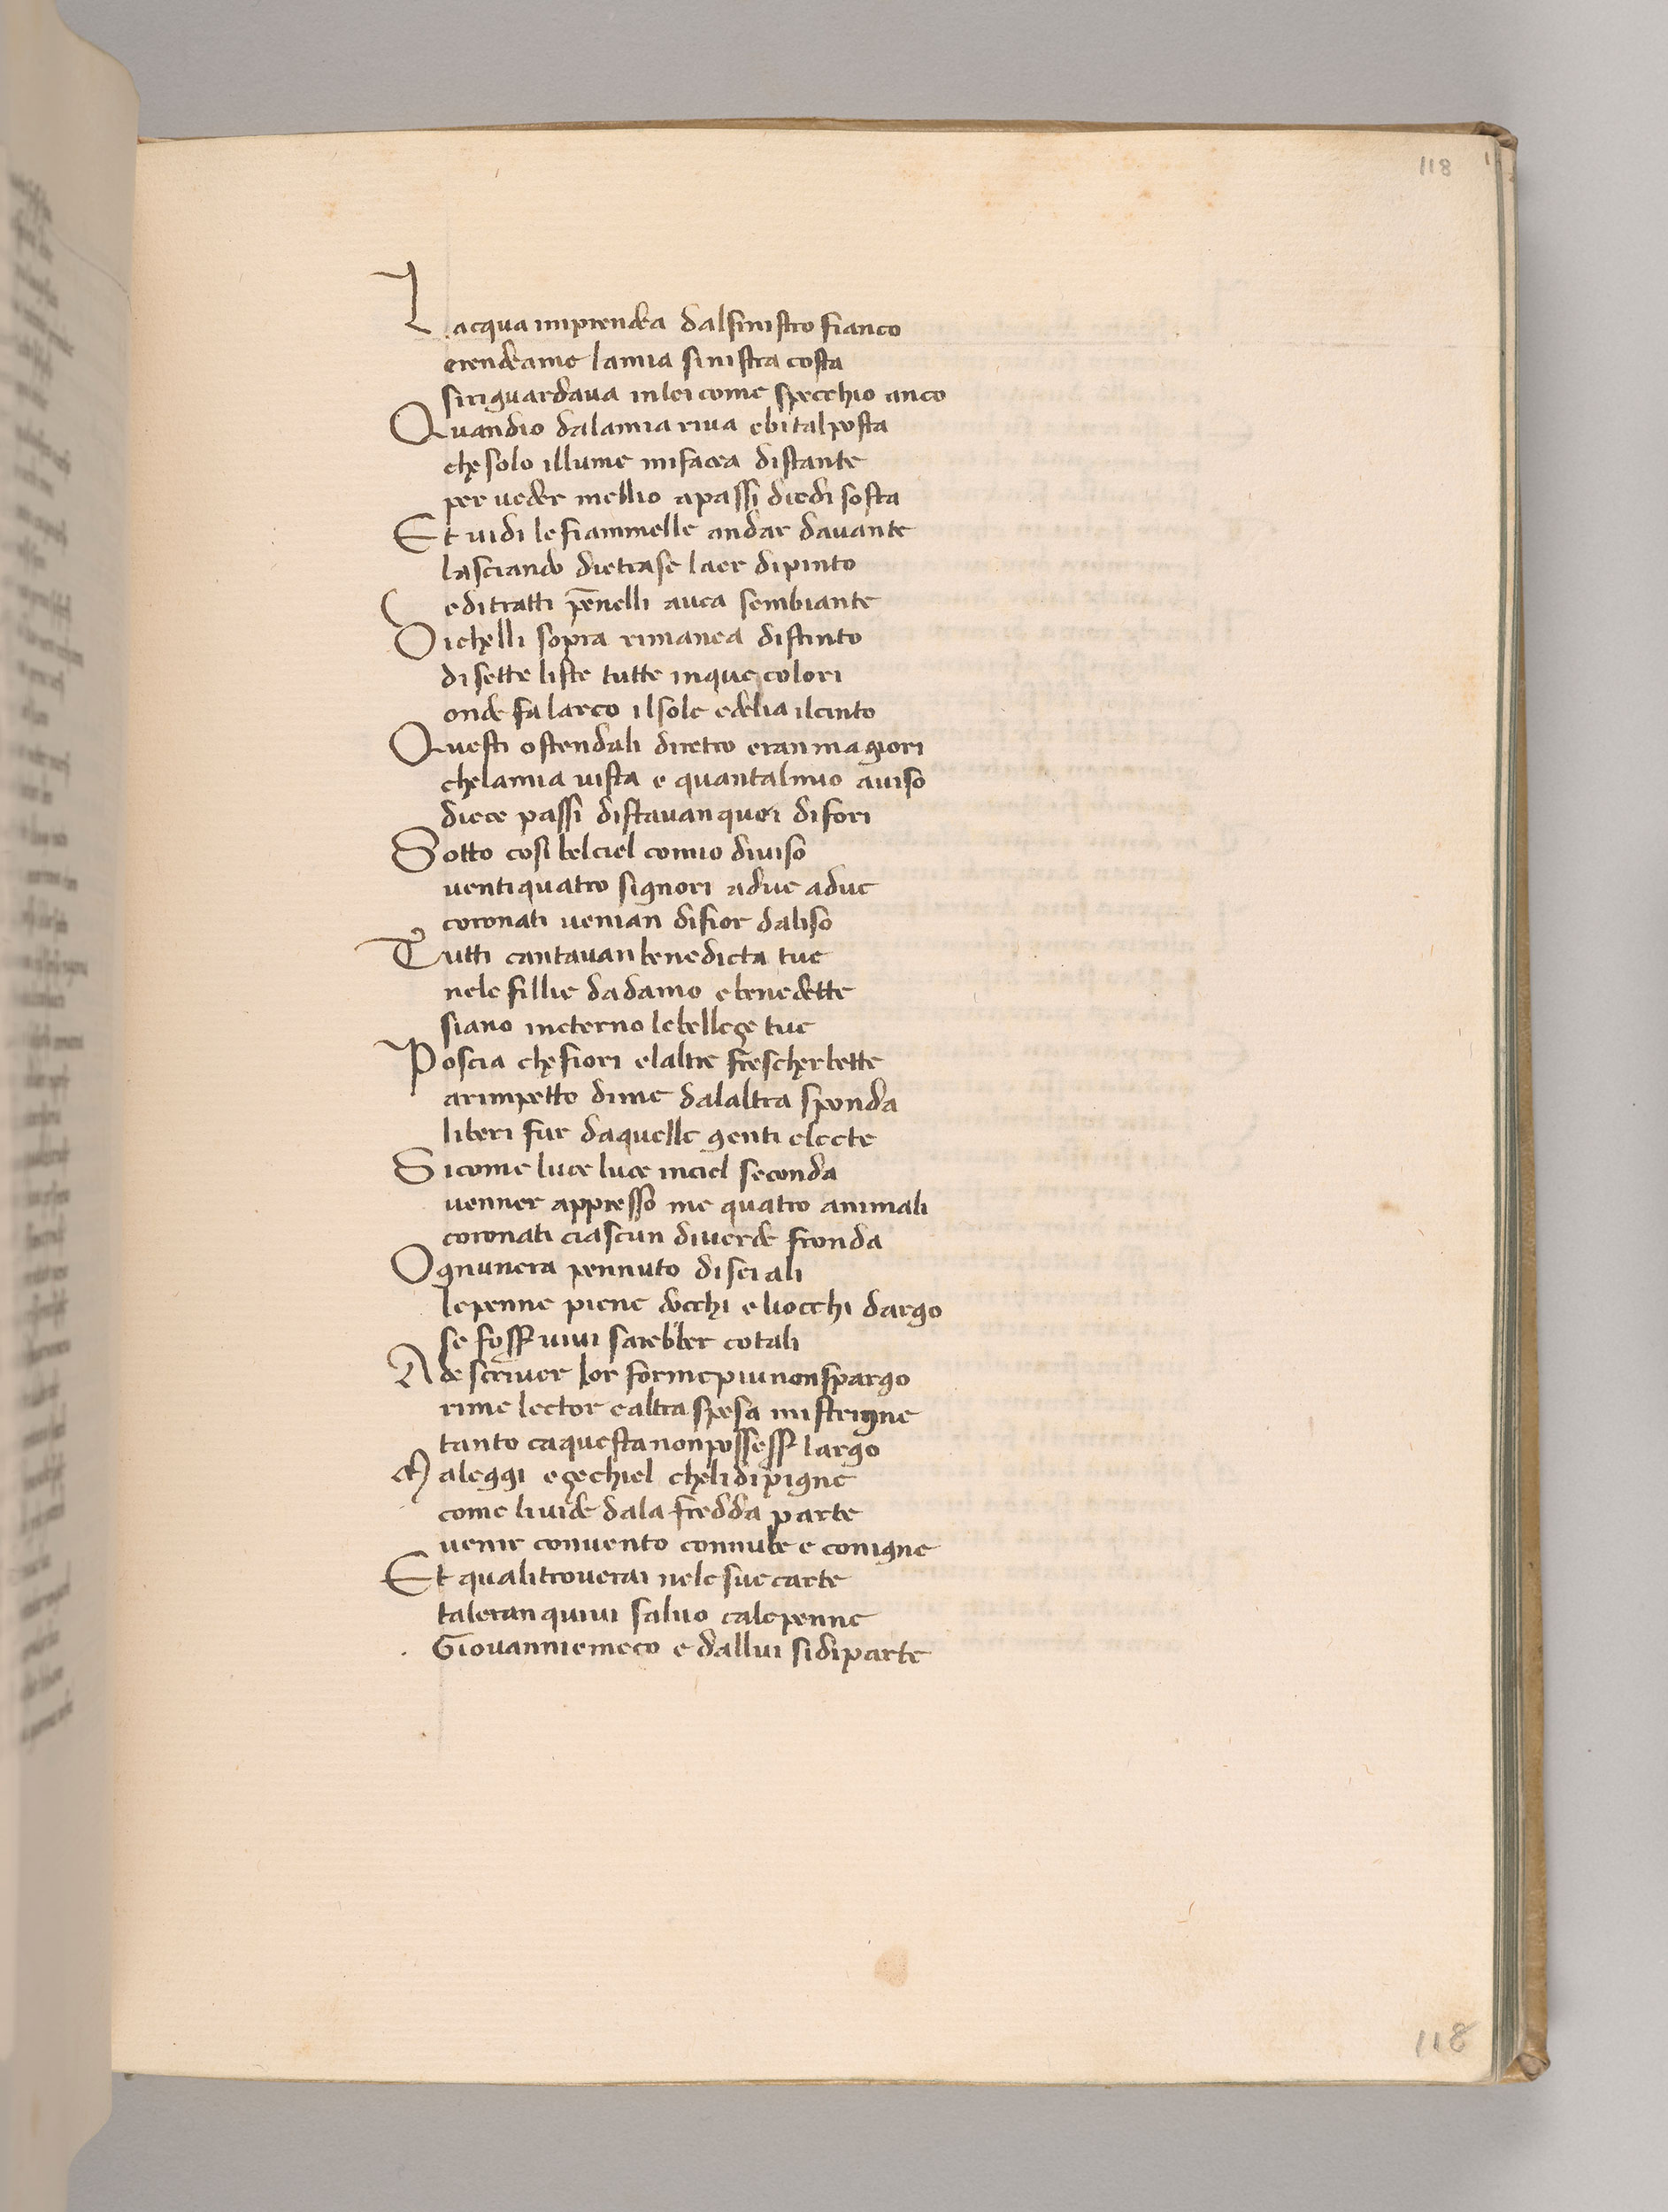 118
Lacqua imprendea dalsinistro fianco
erendeame lamia sinistra costa
siriguardava inlei come specchio anco
Quandio dalamia riva ebi tal posta
che solo illume mi facea distante
per veder mellio apassi diedi sosta
Et vidi le fiammelle andar davante
lasciando dietrase laer dipinto
e di tratti pēnelli avea sembiante
Sichelli sopra rimanea distinto
di sette liste tutte inque colori
onde fa larco il sole edelia ilcinto
Questi ostendali dirietro eran magiori
che lamia vista e quantalmio aviso
diece passi distavan quei difori
Sotto cosi belciel comio diviso
ventiquatro signori adue adue
coronati venian difior daliso
Tutti cantavan benedicta tue
nele fillie dadamo e benedette
siano ineterno lebelleçe tue
Poscia che fiori elaltre frescherbette
arimpetto dime dalaltra sponda
liberi fur daquelle genti electe
Sicome luce luce inciel seconda
venner appresso me quatro animali
coronati ciascun diverde fronda
Ognunera pennuto disei ali
lepenne piene docchi e liocchi dargo
se fosser vivi sarebber cotali
Ade scriver lor forme piu non spargo
rime lector ealtra spesa mi strigne
tanto caquesta non possesser largo
Ma leggi eçechiel cheli dipigne
come livide dala fredda parte
venir convento connube e conigne
Et quali troverai nele sue carte
taleran quivi salvo cale penne
Giovanni e meco e dallui sidiparte
118